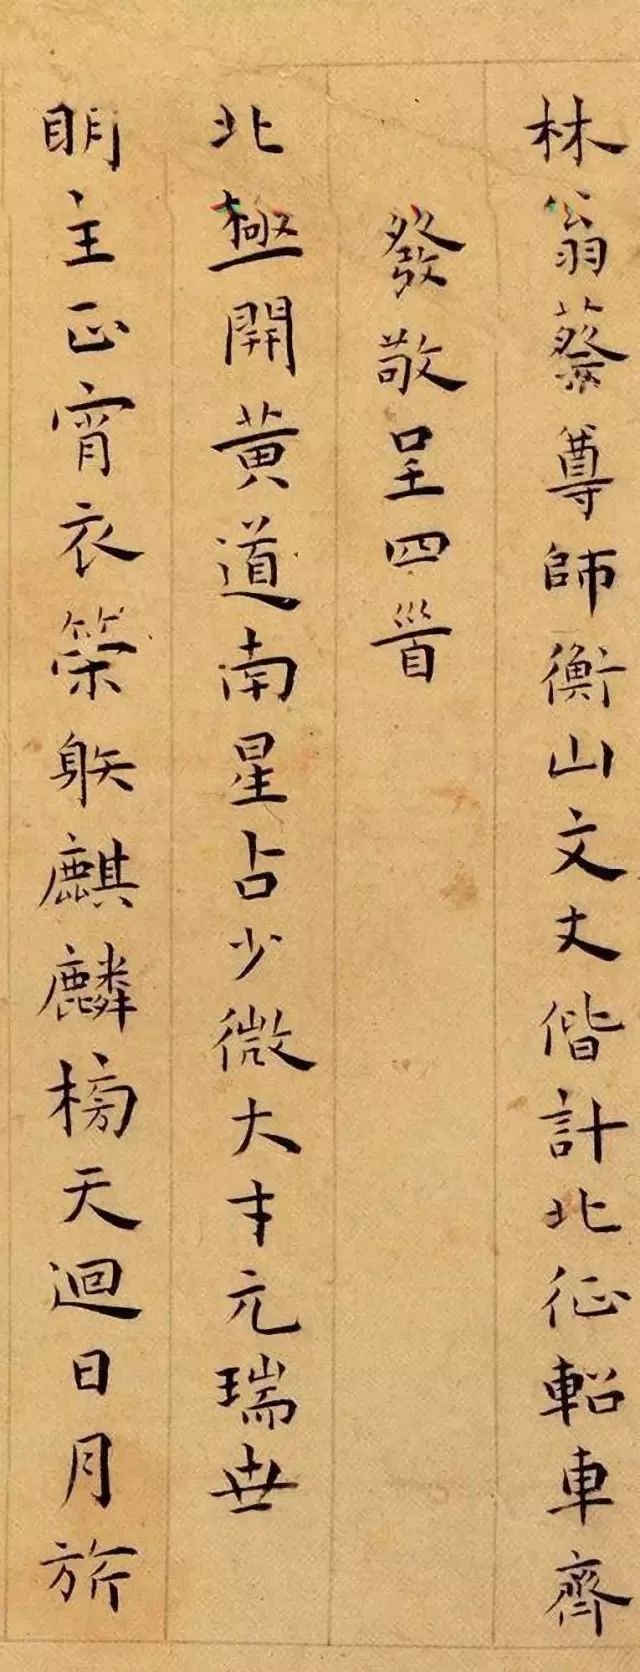 林翁蔡尊師衡山文丈偕計北征軺車齊
發敬呈四首
北極開黃道南星占少微大才元瑞世
明主正宵衣策躲麒麟榜天迴日月旂